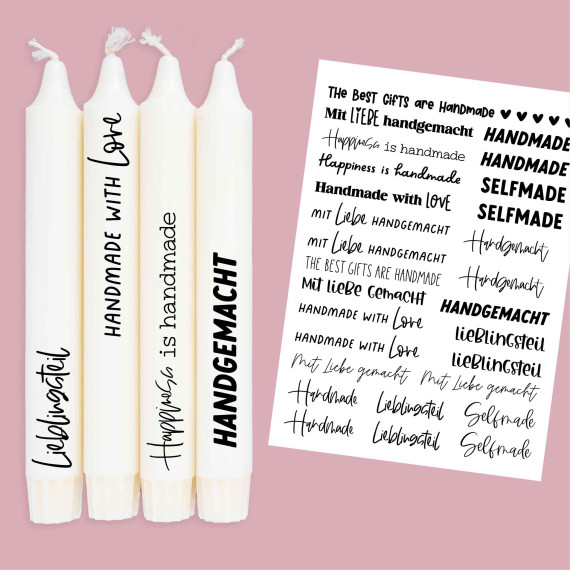 Lieblingsteil
HANDMADE WITH Love
Happiness is handmade
HANDGEMACHT
THE BEST GIFTS are HANDMADE
Mit LIEBE handgemacht
Happiness is handmade
Happiness is handmade
Handmade with LOVE
MIT Liebe HANDGEMACHT
MIT Liebe HANDGEMACHT
THE BEST GIFTS ARE HANDMADE
Mit Liebe Gemacht
HANDMADE WITH Love
HANDMADE WITH Love
Mit Liebe gemacht
Mit Liebe gemacht
Handmade
Lieblingsteil
Selfmade
Handmade
Lieblingsteil
Selfmade
HANDMADE
HANDMADE
SELFMADE
SELFMADE
Handgemacht
Handgemacht
HANDGEMACHT
LIEBLINGSTEIL
LIEBLINGSTEIL